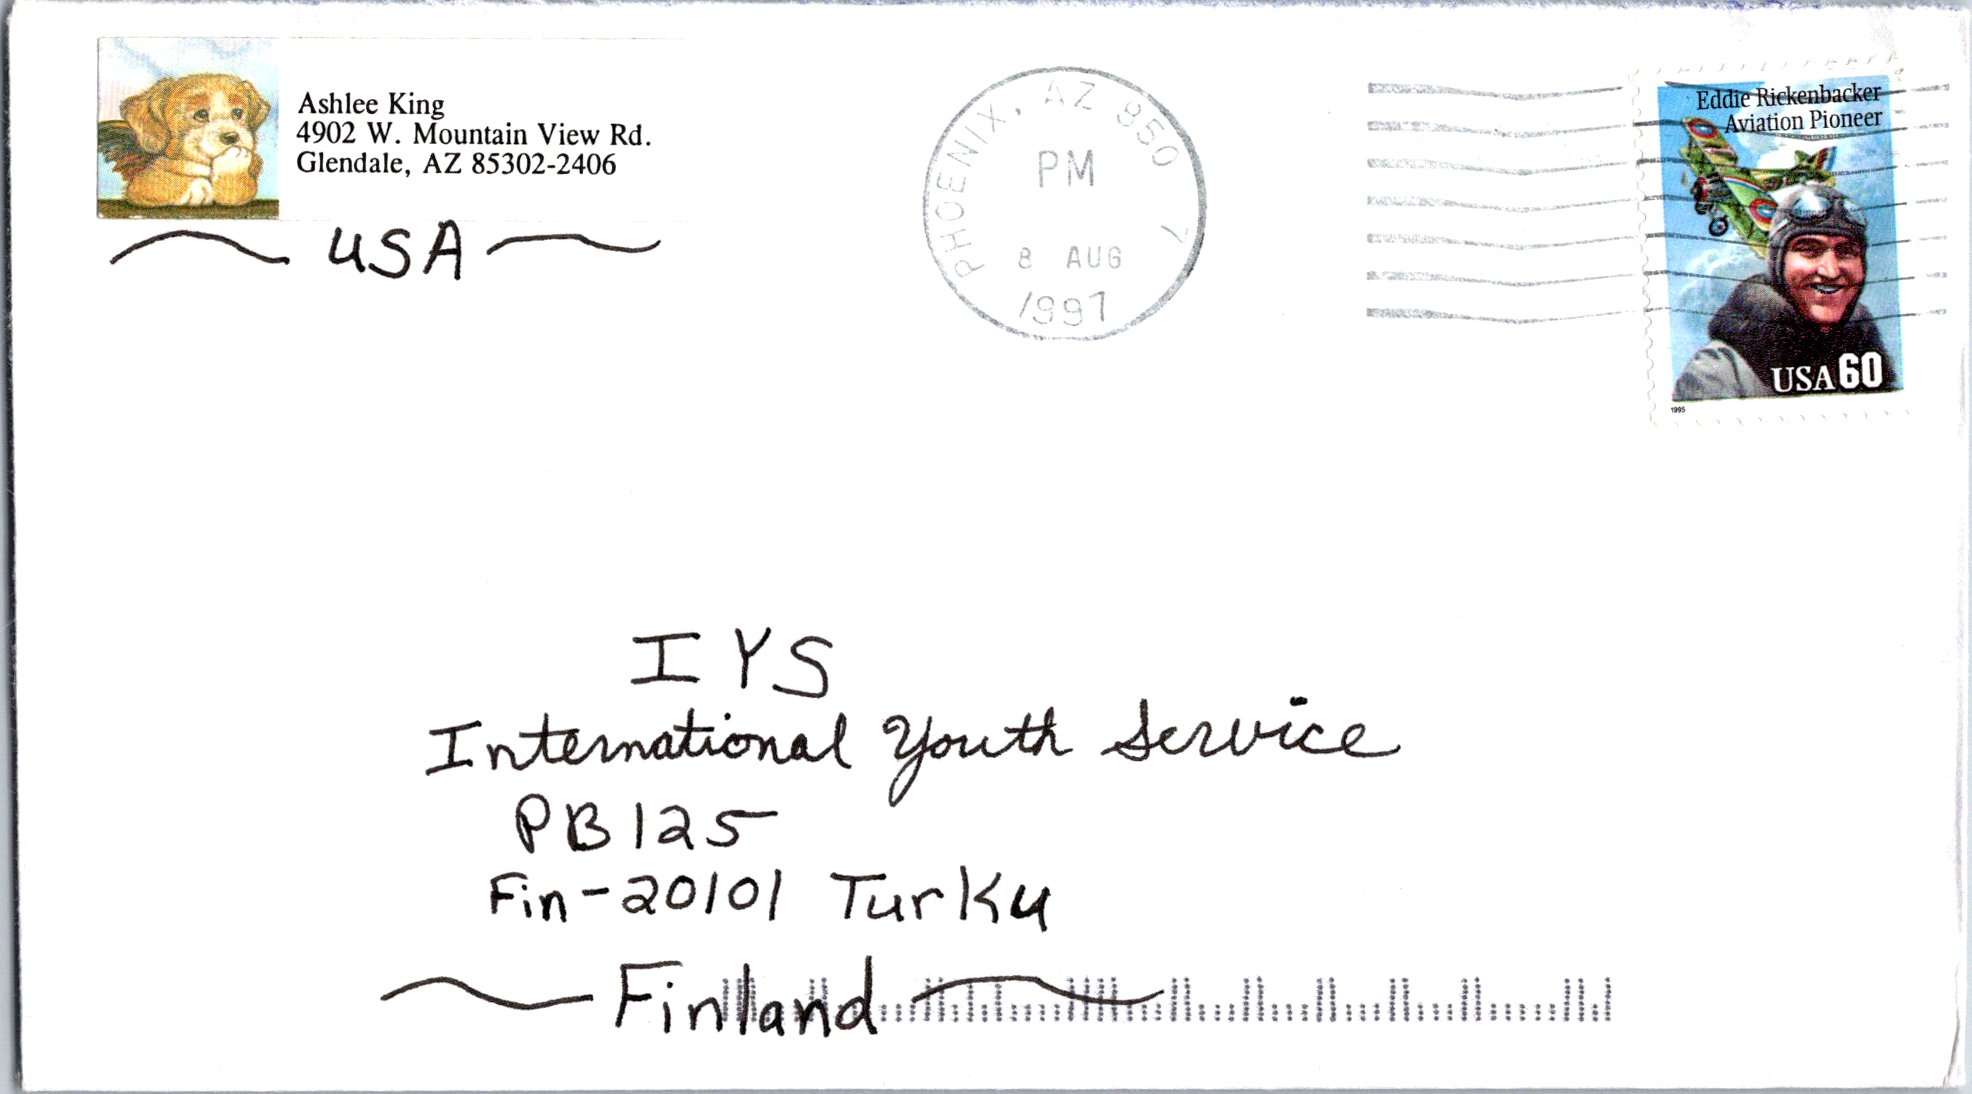 Ashlee King
4902 W. Mountain View Rd.
Glendale, AZ 85302-2406
USA
PHOENIX, AZ 850 7
PM
8 AUG
1997
Eddie Rickenbacker
Aviation Pioneer
USA 60
1995
IYS
International Youth Service
PB 125
Fin-20101 Turku
Finland